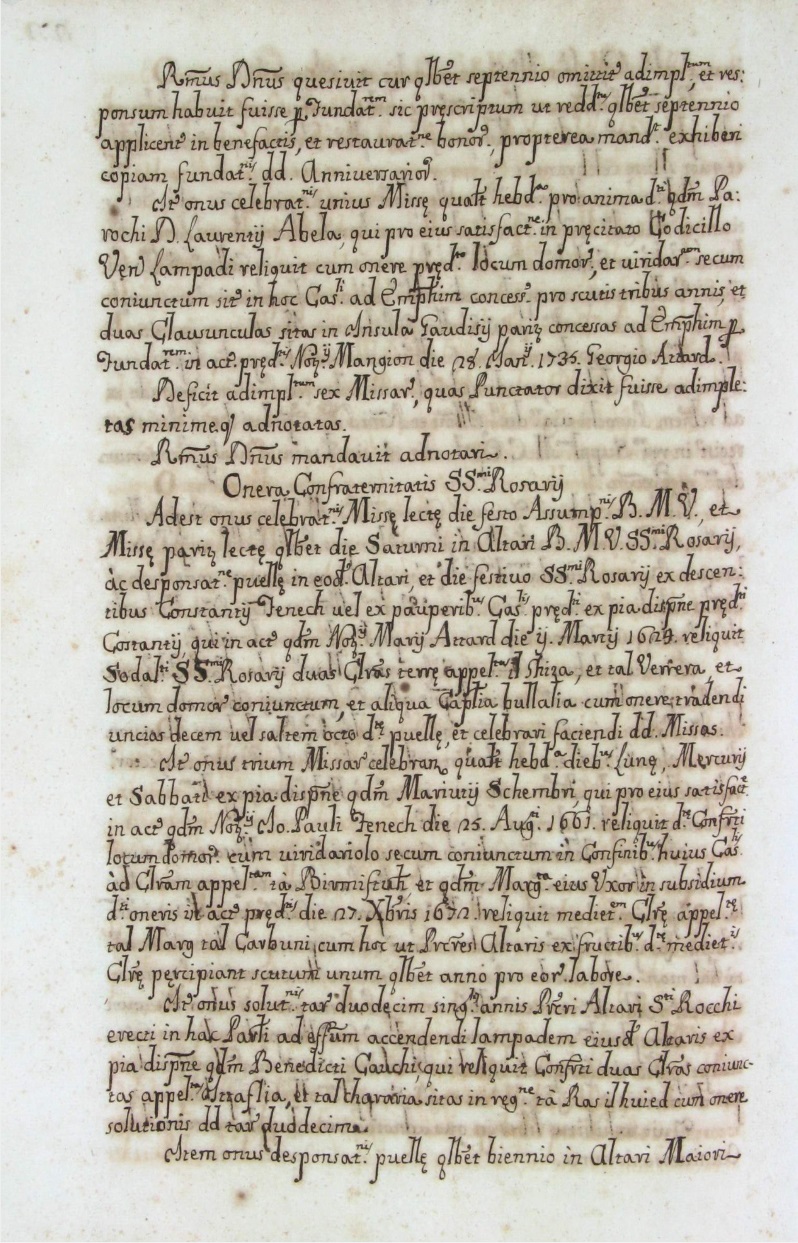 Rm̃us Dñus quesiuit cur qlbet septennio omittit adimpl.tum, et res:
ponsum habuit fuisse p. Fundat.rem sic pręscriptum ut redd.tus qlbet septennio
applicent in benefactis, et restaurat.ne bonor., propterea mand.t exhiberi
copiam fundat.nis dd. Anniversarior.
It. onus celebrat.nis unius Missę qualt hebd.a pro anima d.ti qdm̃ Pa:
rochi D. Laurentij Abela, qui pro eius satisfact.ne in pręcitato Codicillo
Ven. Lampadi reliquit cum onere pręd.to locum domor., et uiridar.um secum
coniunctum sit. in hoc Cas.li ad Emphim concess. pro scutis tribus annis, et
duas Clausunculas sitas in Insula Gaudisij pariq concessas ad Emphim p.
Fundat.rem in act. pręd.tis Not.rij Mangion die 28. Mart.ij 1735. Georgio Attard.
Deficit adimpl.tum sex Missar., quas Punctator dixit fuisse adimple:
tas minime q. adnotatas.
Rm̃us Dñus mandauit adnotari.
Onera Confraternitatis SS.mi Rosarij
Adest onus celebrat.nis Missę lectę die festo Assump.nis B. M. V., et
Missę pariq lectę qlbet die Saturni in Altari B. M. V. SS.mi Rosarij,
ac desponsat.ne puellę in eod. Altari, et die festiuo SS.mi Rosarij ex descen:
tibus Constantij Tenech uel ex pauperib.us Cas.lis pręd.ti ex pia disp̃ne pręd.ti
Costantij, qui in act. qdm̃ Not.rij Marij Attard die ij. Martij reliquit
Sodal.ti SS.mi Rosarij duas Clr̃as terrę appel.tas Il Shiza, et tal Verrera, et
locum domor. coniunctum, et aliqua Cap̃lia bullalia cum onere tradendi
uncias decem uel saltem octo d.tę puellę, et celebrari faciendi dd. Missas.
It. onus trium Missar. celebran. qualt hebd.a dieb.us Lunę, Mercurij
et Sabbati ex pia disp̃ne qdm̃ Mariutij Schembri, qui pro eius satisfact.
in act. qdm̃ Not.rij Io. Pauli Tenech die 25. Aug.ti 1661. reliquit d.tę Confrti
locum domor. cum uiridariolo secum coniunctum in Confinib.us huius Cas.lis
ad Clr̃am appel.tam ta Birmiftuh et qdm̃ Marg.ta eius Uxor in subsidium
d.ti oneris in act. pręd.tis die 27. Xbris 1672. reliquit mediet.em Clr̃ę appel.tę
tal Marg tal Carbuni, cum hoc ut Prc̃res Altaris ex fructib.us d.tę mediet.is
Clr̃ę pęrcipiant scutum unum qlbet anno pro eor. labore.
It. onus solut.nis tar. duodecim sing.lis annis Prc̃ri Altari S.ti Rocchi
erecti in hac Parli ad effum accendendi lampadem eiusd. Altaris ex
pia disp̃ne qdm̃ Benedicti Cauchi, qui reliquit Confrti duas Clr̃as coniunc-
tas appel.tas, et tal sitas in reg.ne ta Ras il huied cum onere
solutionis dd tar. duodecim.
Item onus desponsat.nis puellę qlbet biennio in Altari Maiori